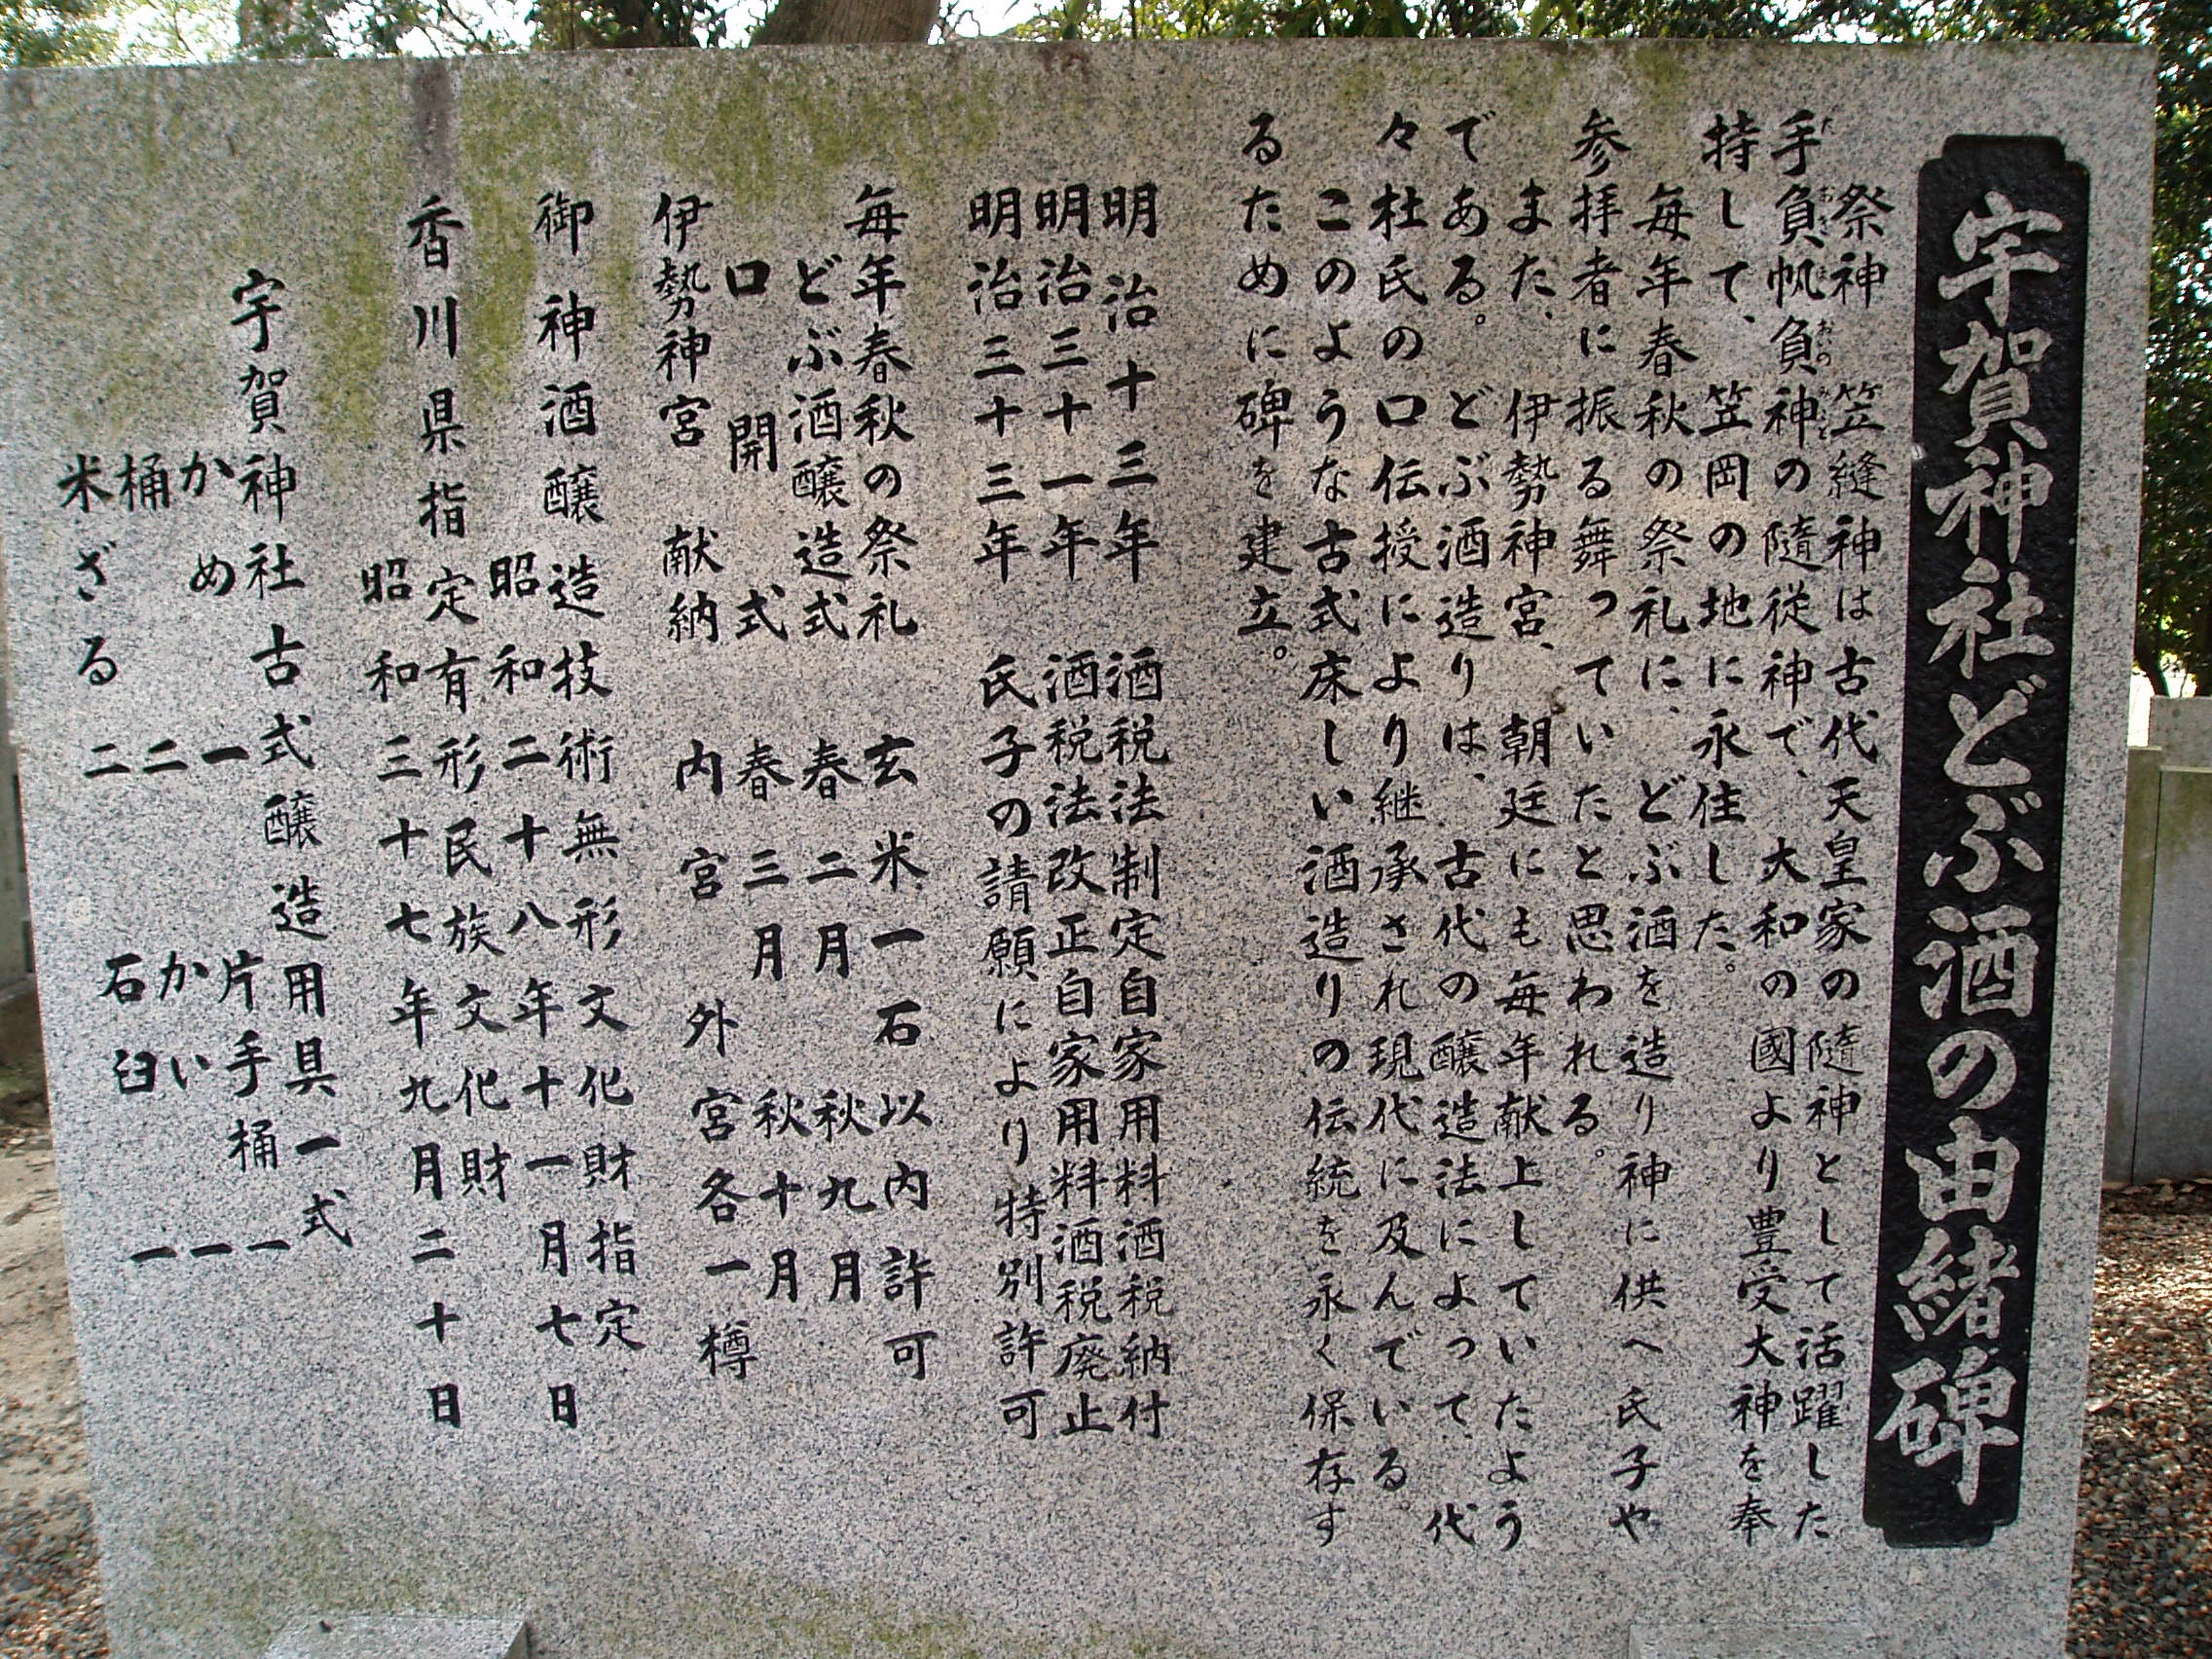 宇賀神社どぶ酒の由緒碑
祭神　笠縫神は古代天皇家の隨神として活躍した
手負帆負神の隨従神で、大和の國より豊受大神を奉
持して、笠岡の地に永住した。
毎年春秋の祭礼に、どぶ酒を造り神に供へ氏子や
参拝者に振る舞っていたと思われる。
また、伊勢神宮、朝廷にも毎年献上していたよう
である。どぶ酒造りは、古代の醸造法によって、代
々杜氏の口伝授により継承され現代に及んでいる。
このような古式床しい酒造りの伝統を永く保存す
るために碑を建立。
明治十三年　酒税法制定自家用料酒税納付
明治三十一年　酒税法改正自家用料酒税廃止
明治三十三年　氏子の請願により特別許可
毎年春秋の祭礼　玄米一石以内許可
どぶ酒醸造式　春二月　秋九月
口開式　春三月　秋十月
伊勢神宮献納　内宮　外宮各一樽
御神酒醸造技術無形文化財指定
昭和二十八年十一月七日
香川県指定有形民族文化財
昭和三十七年九月二十日
宇賀神社古式醸造用具一式
かめ　一　片手桶　一
桶　二　かい　一
米ざる　二　石臼　一